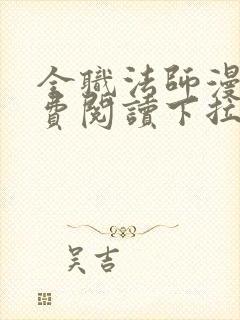 全職法師漫
費閱讀下拉
吴吉